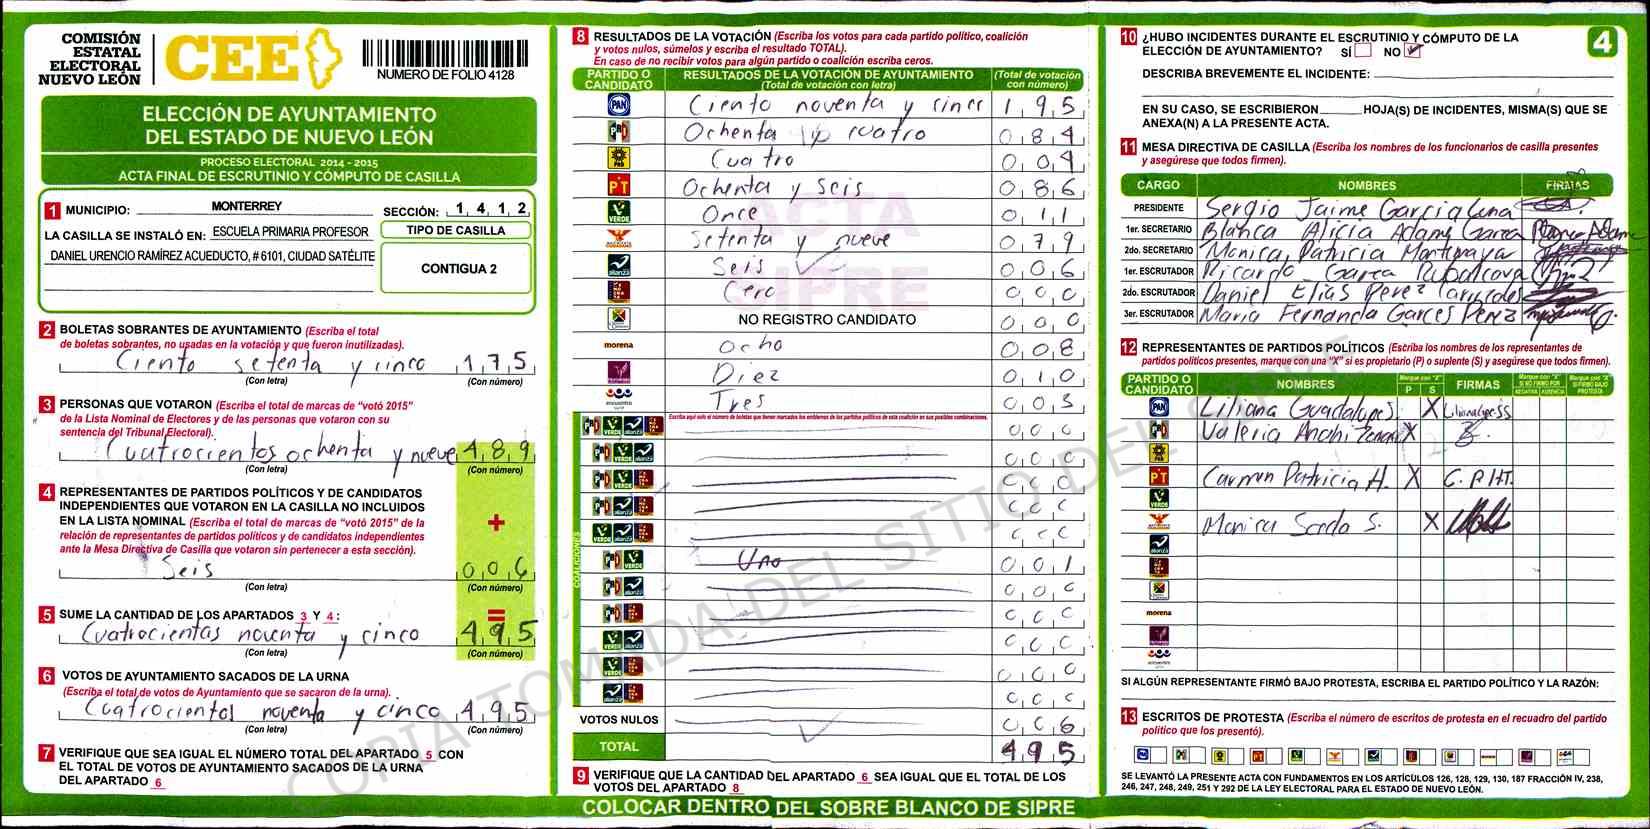 COMISIÓN
ESTATAL
ELECTORAL
NUEVO LEÓN
CEE
NUMERO DE FOLIO 4128
ELECCIÓN DE AYUNTAMIENTO
DEL ESTADO DE NUEVO LEÓN
PROCESO ELECTORAL 2014 - 2015
ACTA FINAL DE ESCRUTINIO Y CÓMPUTO DE CASILLA
1 MUNICIPIO: MONTERREY SECCIÓN: 1 4 1 2
LA CASILLA SE INSTALÓ EN: ESCUELA PRIMARIA PROFESOR
DANIEL URENCIO RAMÍREZ ACUEDUCTO, # 6101, CIUDAD SATÉLITE
TIPO DE CASILLA
CONTIGUA 2
2 BOLETAS SOBRANTES DE AYUNTAMIENTO (Escriba el total
de boletas sobrantes, no usadas en la votación y que fueron inutilizadas).
Ciento setenta y cinco 1 7 5
(Con letra) (Con número)
3 PERSONAS QUE VOTARON (Escriba el total de marcas de “votó 2015”
de la Lista Nominal de Electores y de las personas que votaron con su
sentencia del Tribunal Electoral).
Cuatrocientos ochenta y nueve 4 8 9
(Con letra) (Con número)
4 REPRESENTANTES DE PARTIDOS POLÍTICOS Y DE CANDIDATOS
INDEPENDIENTES QUE VOTARON EN LA CASILLA NO INCLUIDOS
EN LA LISTA NOMINAL (Escriba el total de marcas de “votó 2015” de la
relación de representantes de partidos políticos y de candidatos independientes
ante la Mesa Directiva de Casilla que votaron sin pertenecer a esta sección).
+
Seis 0 0 6
(Con letra) (Con número)
5 SUME LA CANTIDAD DE LOS APARTADOS 3 Y 4 : =
Cuatrocientas noventa y cinco 4 9 5
(Con letra) (Con número)
6 VOTOS DE AYUNTAMIENTO SACADOS DE LA URNA
(Escriba el total de votos de Ayuntamiento que se sacaron de la urna).
Cuatrocientos noventa y cinco 4 9 5
(Con letra) (Con número)
7 VERIFIQUE QUE SEA IGUAL EL NÚMERO TOTAL DEL APARTADO 5 CON
EL TOTAL DE VOTOS DE AYUNTAMIENTO SACADOS DE LA URNA
DEL APARTADO 6
8 RESULTADOS DE LA VOTACIÓN (Escriba los votos para cada partido político, coalición
y votos nulos, súmelos y escriba el resultado TOTAL).
En caso de no recibir votos para algún partido o coalición escriba ceros.
PARTIDO O CANDIDATO RESULTADOS DE LA VOTACIÓN DE AYUNTAMIENTO (Total de votación con letra) (Total de votación con número)
PAN Ciento noventa y cinco 1 9 5
PRD Ochenta y cuatro 0 8 4
PRD Cuatro 0 0 4
PT Ochenta y seis 0 8 6
VERDE Once 0 1 1
Setenta y nueve 0 7 9
alianza Seis 0 0 6
Cero 0 0 0
NO REGISTRO CANDIDATO 0 0 0
morena Ocho 0 0 8
Diez 0 1 0
encuentro Tres 0 0 3
ACTA
SIPRE
Escriba aquí solo el número de boletas que tienen marcados los emblemas de los partidos políticos de esta coalición en sus posibles combinaciones.
COALICIONES
0 0 0
0 0 0
0 0 0
0 0 0
0 0 0
Uno 0 0 1
0 0 0
0 0 0
0 0 0
0 0 0
0 0 0
VOTOS NULOS 0 0 6
TOTAL 4 9 5
9 VERIFIQUE QUE LA CANTIDAD DEL APARTADO 6 SEA IGUAL QUE EL TOTAL DE LOS
VOTOS DEL APARTADO 8
COLOCAR DENTRO DEL SOBRE BLANCO DE SIPRE
10 ¿HUBO INCIDENTES DURANTE EL ESCRUTINIO Y CÓMPUTO DE LA
ELECCIÓN DE AYUNTAMIENTO? SÍ NO
4
DESCRIBA BREVEMENTE EL INCIDENTE:
EN SU CASO, SE ESCRIBIERON HOJA(S) DE INCIDENTES, MISMA(S) QUE SE
ANEXA(N) A LA PRESENTE ACTA.
11 MESA DIRECTIVA DE CASILLA (Escriba los nombres de los funcionarios de casilla presentes
y asegúrese que todos firmen).
CARGO NOMBRES FIRMAS
PRESIDENTE Sergio Jaime Garcia Luna
1er. SECRETARIO Blanca Alicia Adame Garcia Blanca Adame
2do. SECRETARIO Monica Patricia
1er. ESCRUTADOR Ricardo Garza
2do. ESCRUTADOR Daniel Elias Perez
3er. ESCRUTADOR Maria Fernanda Garces Perez
12 REPRESENTANTES DE PARTIDOS POLÍTICOS (Escriba los nombres de los representantes de
partidos políticos presentes, marque con una “X” si es propietario (P) o suplente (S) y asegúrese que todos firmen).
PARTIDO O CANDIDATO NOMBRES Marque con “X” P S FIRMAS Marque con “X” SI NO FIRMÓ POR NEGATIVA AUSENCIA Marque con “X” SI FIRMÓ BAJO PROTESTA
PAN Liliana Guadalupe S. X
Valeria Anahi X
PT Carmen Patricia H. X C.P.H.T.
Monica Sceda S. X
morena
SI ALGÚN REPRESENTANTE FIRMÓ BAJO PROTESTA, ESCRIBA EL PARTIDO POLÍTICO Y LA RAZÓN:
13 ESCRITOS DE PROTESTA (Escriba el número de escritos de protesta en el recuadro del partido
político que los presentó).
SE LEVANTÓ LA PRESENTE ACTA CON FUNDAMENTOS EN LOS ARTÍCULOS 126, 128, 129, 130, 187 FRACCIÓN IV, 238,
246, 247, 248, 249, 251 Y 292 DE LA LEY ELECTORAL PARA EL ESTADO DE NUEVO LEÓN.
COPIA TOMADA DEL SITIO DEL SIPRE